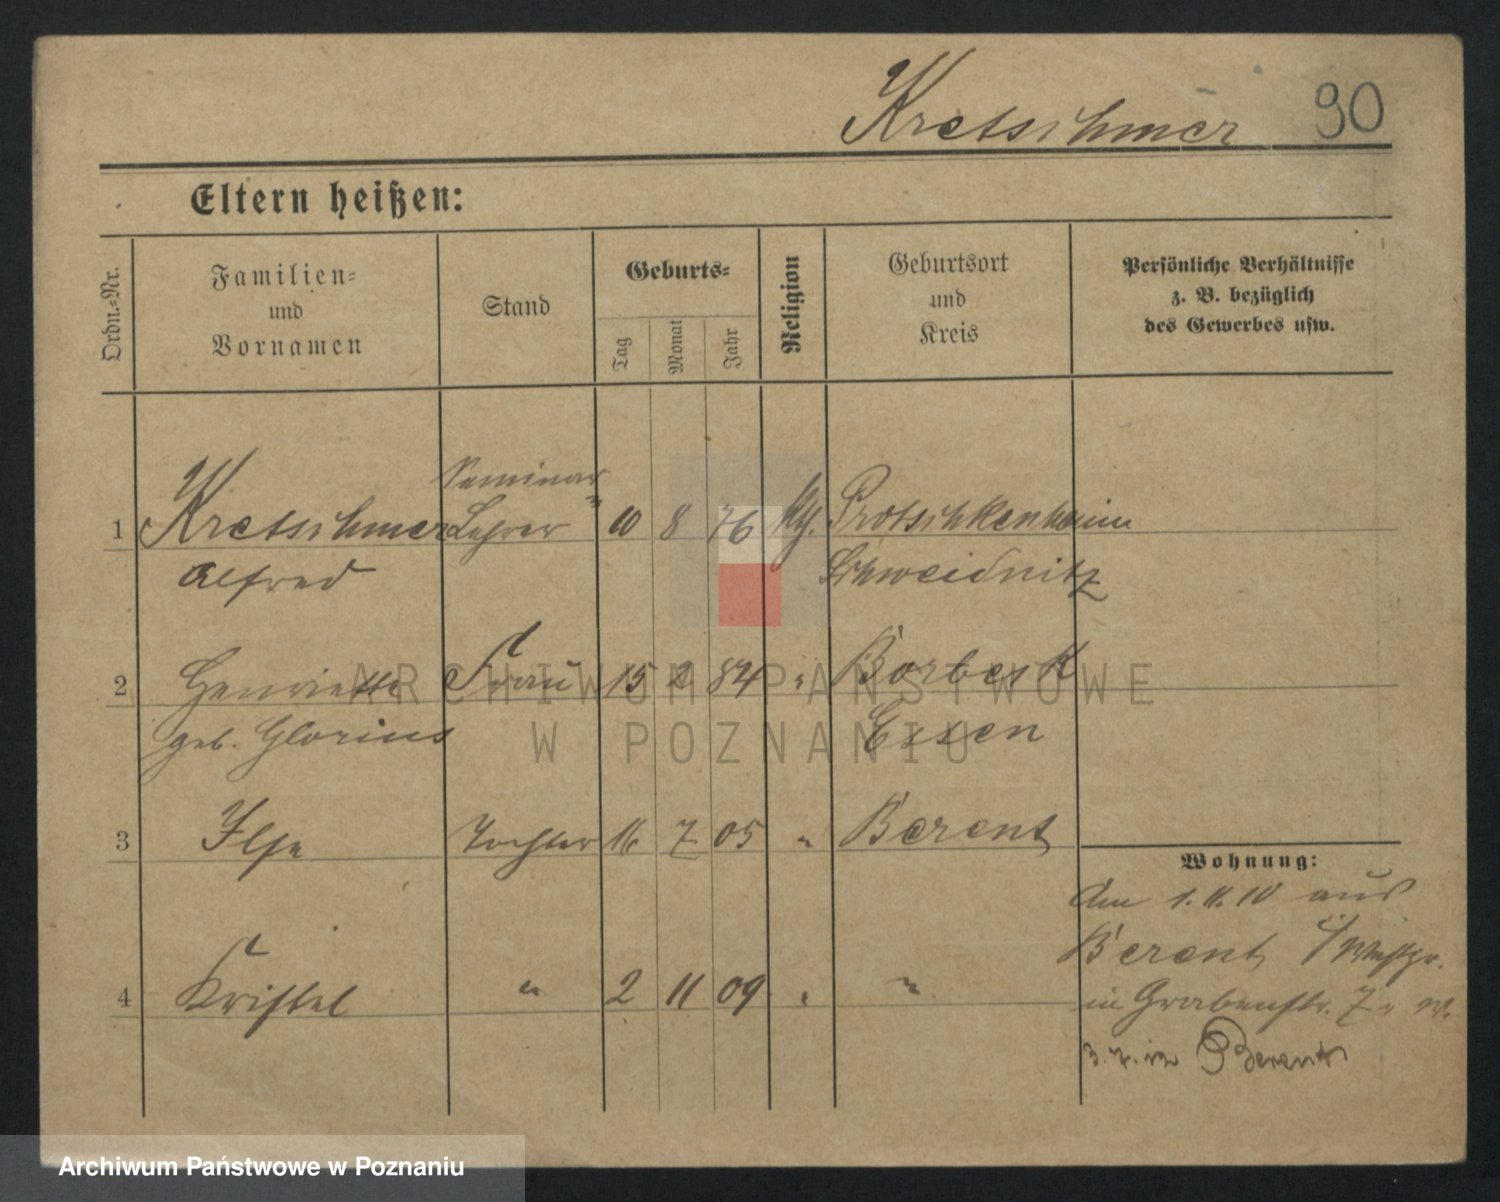 Kretschmer 90
Eltern heißen:
Ordn.-Nr.
Familien-
und
Vornamen
Stand
Geburts-
Tag
Monat
Jahr
Religion
Geburtsort
und
Kreis
Persönliche Verhältnisse
z. B. bezüglich
des Gewerbes usw.
Seminar
1 Kretschmer Lehrer 10 8 76 kth. Protschkenhain
Alfred Schweidnitz
2 Henriette Frau 15 2 84 " Borbeck
geb. Glorius Essen
3 Ilse Tochter 16 7 05 " Berent
Wohnung:
Am 1.11.10 aus
Berent i/Westpr.
4 Kristel " 2 11 09 " "
in Grabenstr. 7
Berent
ARCHIWUM PAŃSTWOWE
W POZNANIU
Archiwum Państwowe w Poznaniu